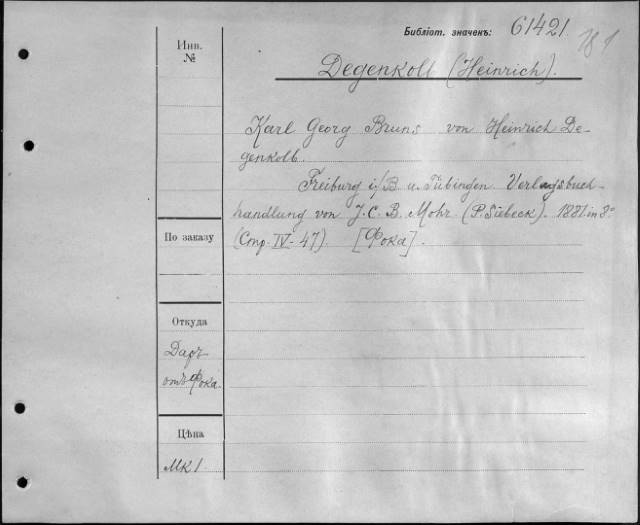 Библіот. значенъ: 61421
Инв.
№
Degenkolb (Heinrich).
Karl Georg Bruns von Heinrich De-
genkolb.
Freiburg i/B. u. Tübingen Verlagsbuch-
handlung von J. C. B. Mohr. (P. Siebeck). 1881. in 8º
(Стр. IV-47). [Фока].
По заказу
Откуда
Даръ
отъ Фока.
Цѣна
Мк 1.